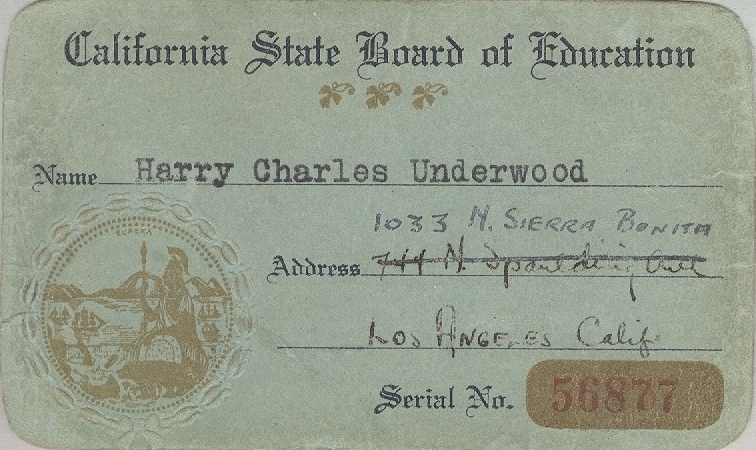 California State Board of Education
EUREKA
Name Harry Charles Underwood
1033 N. SIERRA BONITA
Address 744 N. Spaulding Ave
LOS ANGELES Calif.
Serial No. 56877